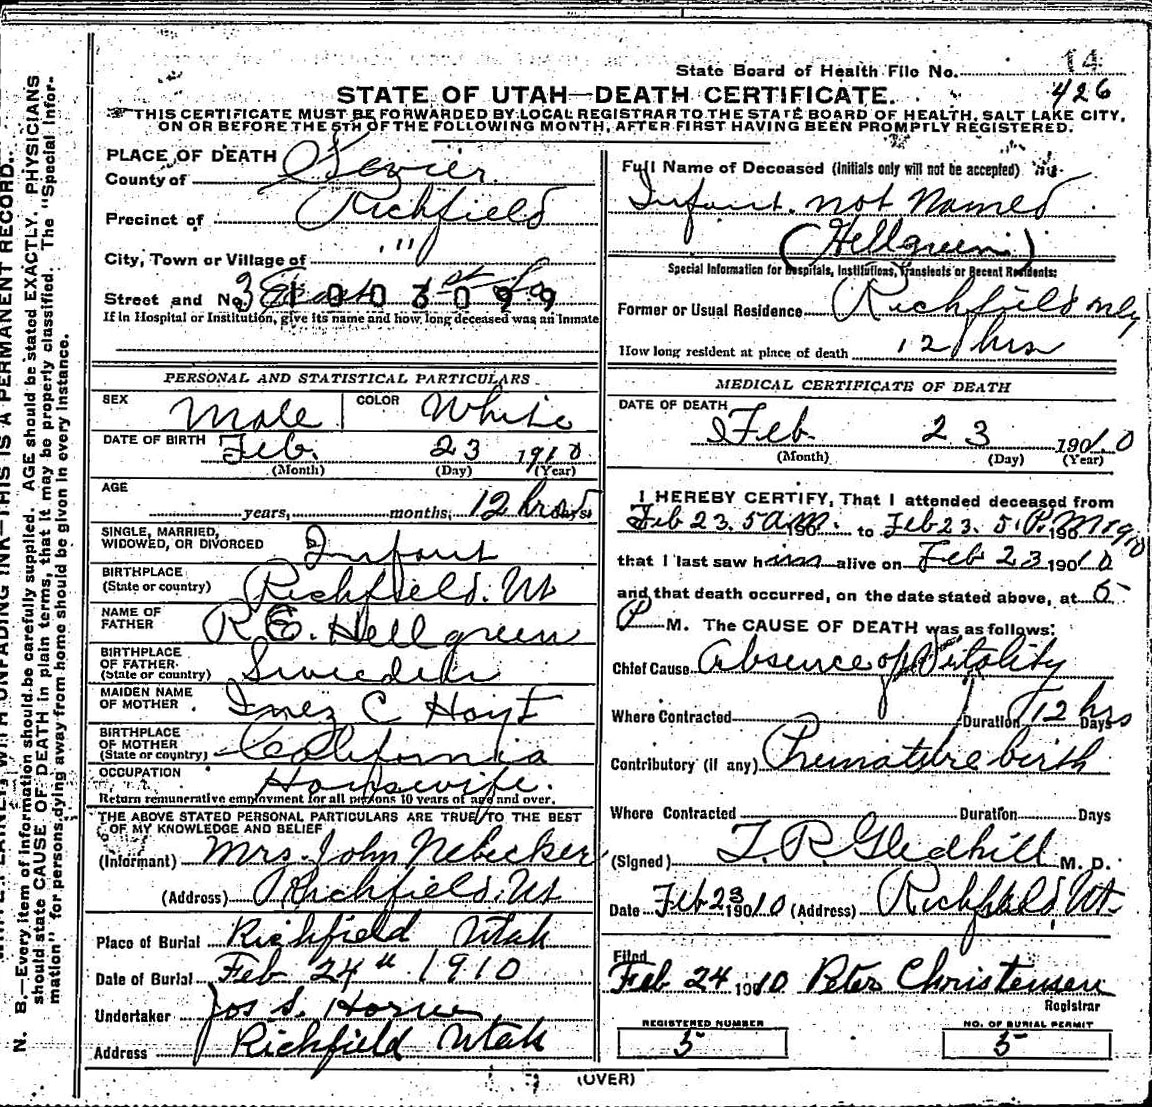 14
State Board of Health File No. 426
STATE OF UTAH—DEATH CERTIFICATE.
THIS CERTIFICATE MUST BE FORWARDED BY LOCAL REGISTRAR TO THE STATE BOARD OF HEALTH, SALT LAKE CITY,
ON OR BEFORE THE 5TH OF THE FOLLOWING MONTH, AFTER FIRST HAVING BEEN PROMPTLY REGISTERED.
N. B.—Every item of information should be carefully supplied. AGE should be stated EXACTLY. PHYSICIANS
should state CAUSE OF DEATH in plain terms, that it may be properly classified. The "Special Infor-
mation" for persons dying away from home should be given in every instance.
UNFADING INK—THIS IS A PERMANENT RECORD.
PLACE OF DEATH
County of Sevier
Precinct of Richfield
City, Town or Village of "
Street and No. 3 East 1st So
1003099
If in Hospital or Institution, give its name and how long deceased was an Inmate
PERSONAL AND STATISTICAL PARTICULARS
SEX Male COLOR White
DATE OF BIRTH Feb. 23 1910
(Month) (Day) (Year)
AGE
years, months, 12 hrs days
SINGLE, MARRIED,
WIDOWED, OR DIVORCED Infant
BIRTHPLACE
(State or country) Richfield. Ut
NAME OF
FATHER R E. Hellgreen
BIRTHPLACE
OF FATHER
(State or country) Swieden
MAIDEN NAME
OF MOTHER Inez C Hoyt
BIRTHPLACE
OF MOTHER
(State or country) California
OCCUPATION Housewife.
Return remunerative employment for all persons 10 years of age and over.
THE ABOVE STATED PERSONAL PARTICULARS ARE TRUE TO THE BEST
OF MY KNOWLEDGE AND BELIEF
(Informant) Mrs. John Nebecker
(Address) Richfield. Ut
Place of Burial Richfield Utah
Date of Burial Feb 24th 1910
Undertaker Jos S. Horne
Address Richfield Utah
Full Name of Deceased (initials only will not be accepted)
Infant. not Named
(Hellgreen)
Special Information for Hospitals, Institutions, Transients or Recent Residents:
Former or Usual Residence Richfield
How long resident at place of death 12 hrs
MEDICAL CERTIFICATE OF DEATH
DATE OF DEATH
Feb. 23 1910
(Month) (Day) (Year)
I HEREBY CERTIFY, That I attended deceased from
Feb 23. 5 a.m. 190 to Feb 23. 5. P.M 1910
that I last saw him alive on Feb 23 1910
and that death occurred, on the date stated above, at 5
P M. The CAUSE OF DEATH was as follows:
Chief Cause Absence of Vitality
Where Contracted Duration 12 hrs Days
Contributory (if any) Premature birth
Where Contracted Duration Days
(Signed) T. R. Gledhill M. D.
Date Feb 23 1910 (Address) Richfield, Ut.
Filed
Feb 24 1910 Peter Christensen
Registrar
REGISTERED NUMBER NO. OF BURIAL PERMIT
5 5
(OVER)